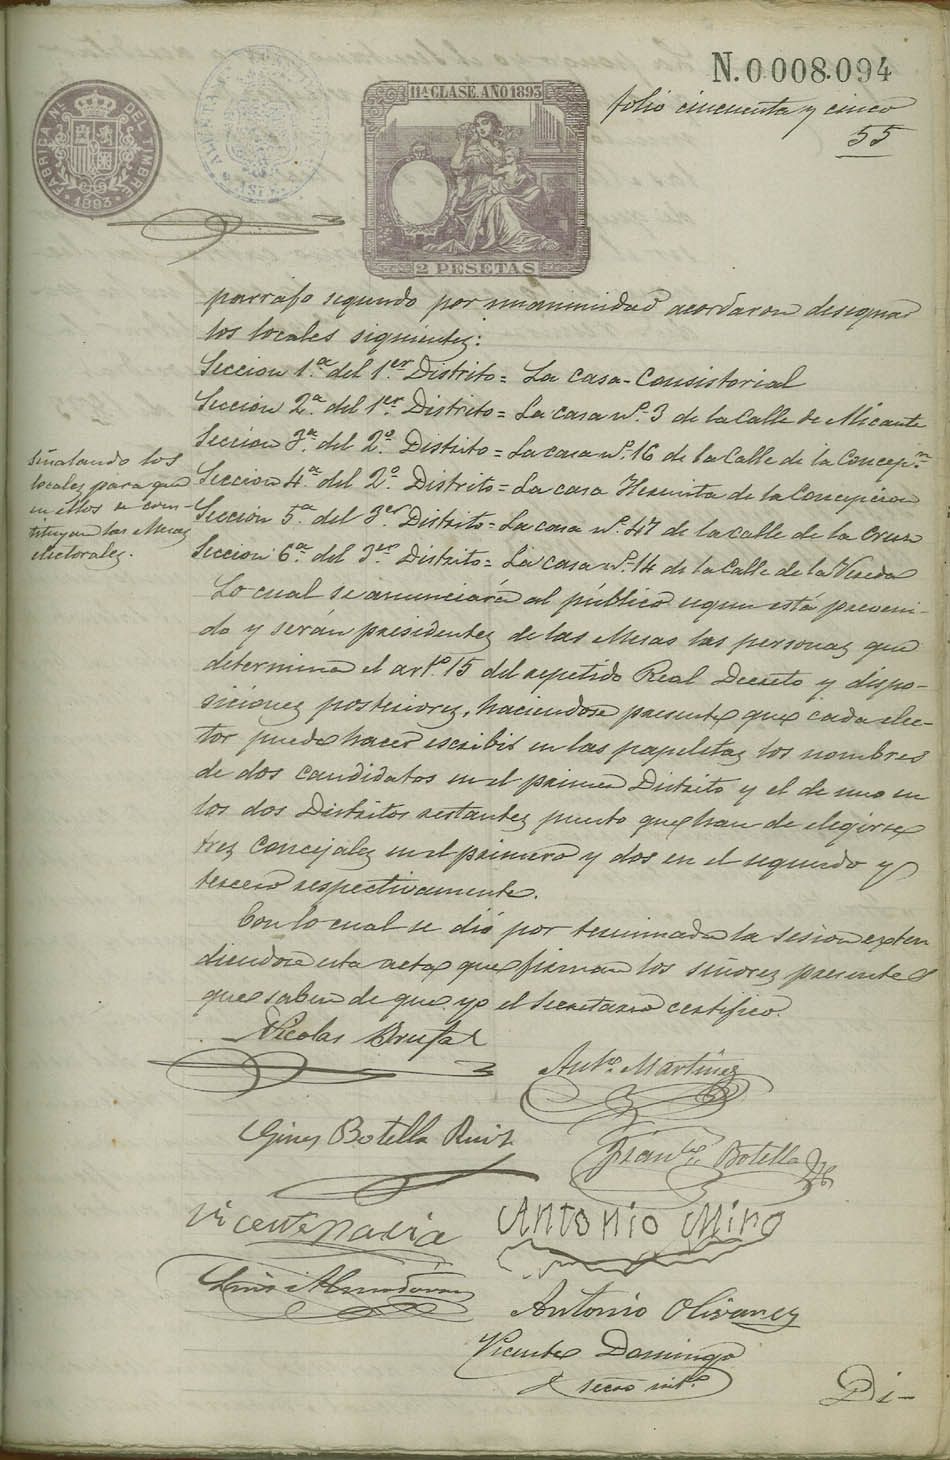 N.0.008.094
folio cincuenta y cinco
55
FABRICA NL. DEL TIMBRE
1893
11ª CLASE. AÑO 1893
2 PESETAS
parrafo segundo por unanimidad acordaron designar
los locales siguientes:
Seccion 1.ª del 1.er Distrito = La casa-Consistorial
Seccion 2.ª del 1.er Distrito = La casa nº. 3 de la Calle de Alicante
Seccion 3.ª del 2.º Distrito = La casa nº. 16 de la Calle de la Concepn.
Seccion 4.ª del 2.º Distrito = La casa Hermita de la Concepcion
Seccion 5.ª del 3.er Distrito = La casa nº. 47 de la calle de la Cruz
Seccion 6.ª del 3.er Distrito = La casa nº. 14 de la Calle de la Vereda
señalando los
locales para que
en ellos se cons-
tituyan las Mesas
electorales.
Lo cual se anunciará al público segun está preveni-
do y serán presidentes de las Mesas las personas que
determina el artº. 15 del repetido Real Decreto y dispo-
siciones posteriores, haciendose presente que cada elec-
tor puede hacer escribir en las papeletas los nombres
de dos candidatos en el primer Distrito y el de uno en
los dos Distritos restantes puesto que han de elegirse
tres Concejales en el primero y dos en el segundo y
tercero respectivamente.
Con lo cual se dió por terminada la sesion exten
diendose esta acta que firman los señores presentes
que saben de que yo el Secretario certifico.
Nicolas Brufal
Antº. Martinez
Gines Botella Ruiz
Franco. Botella
Vicente Navia
Antonio Miro
Luis Almodovar
Antonio Olivares
Vicente Domingo
secro intº.
Di-